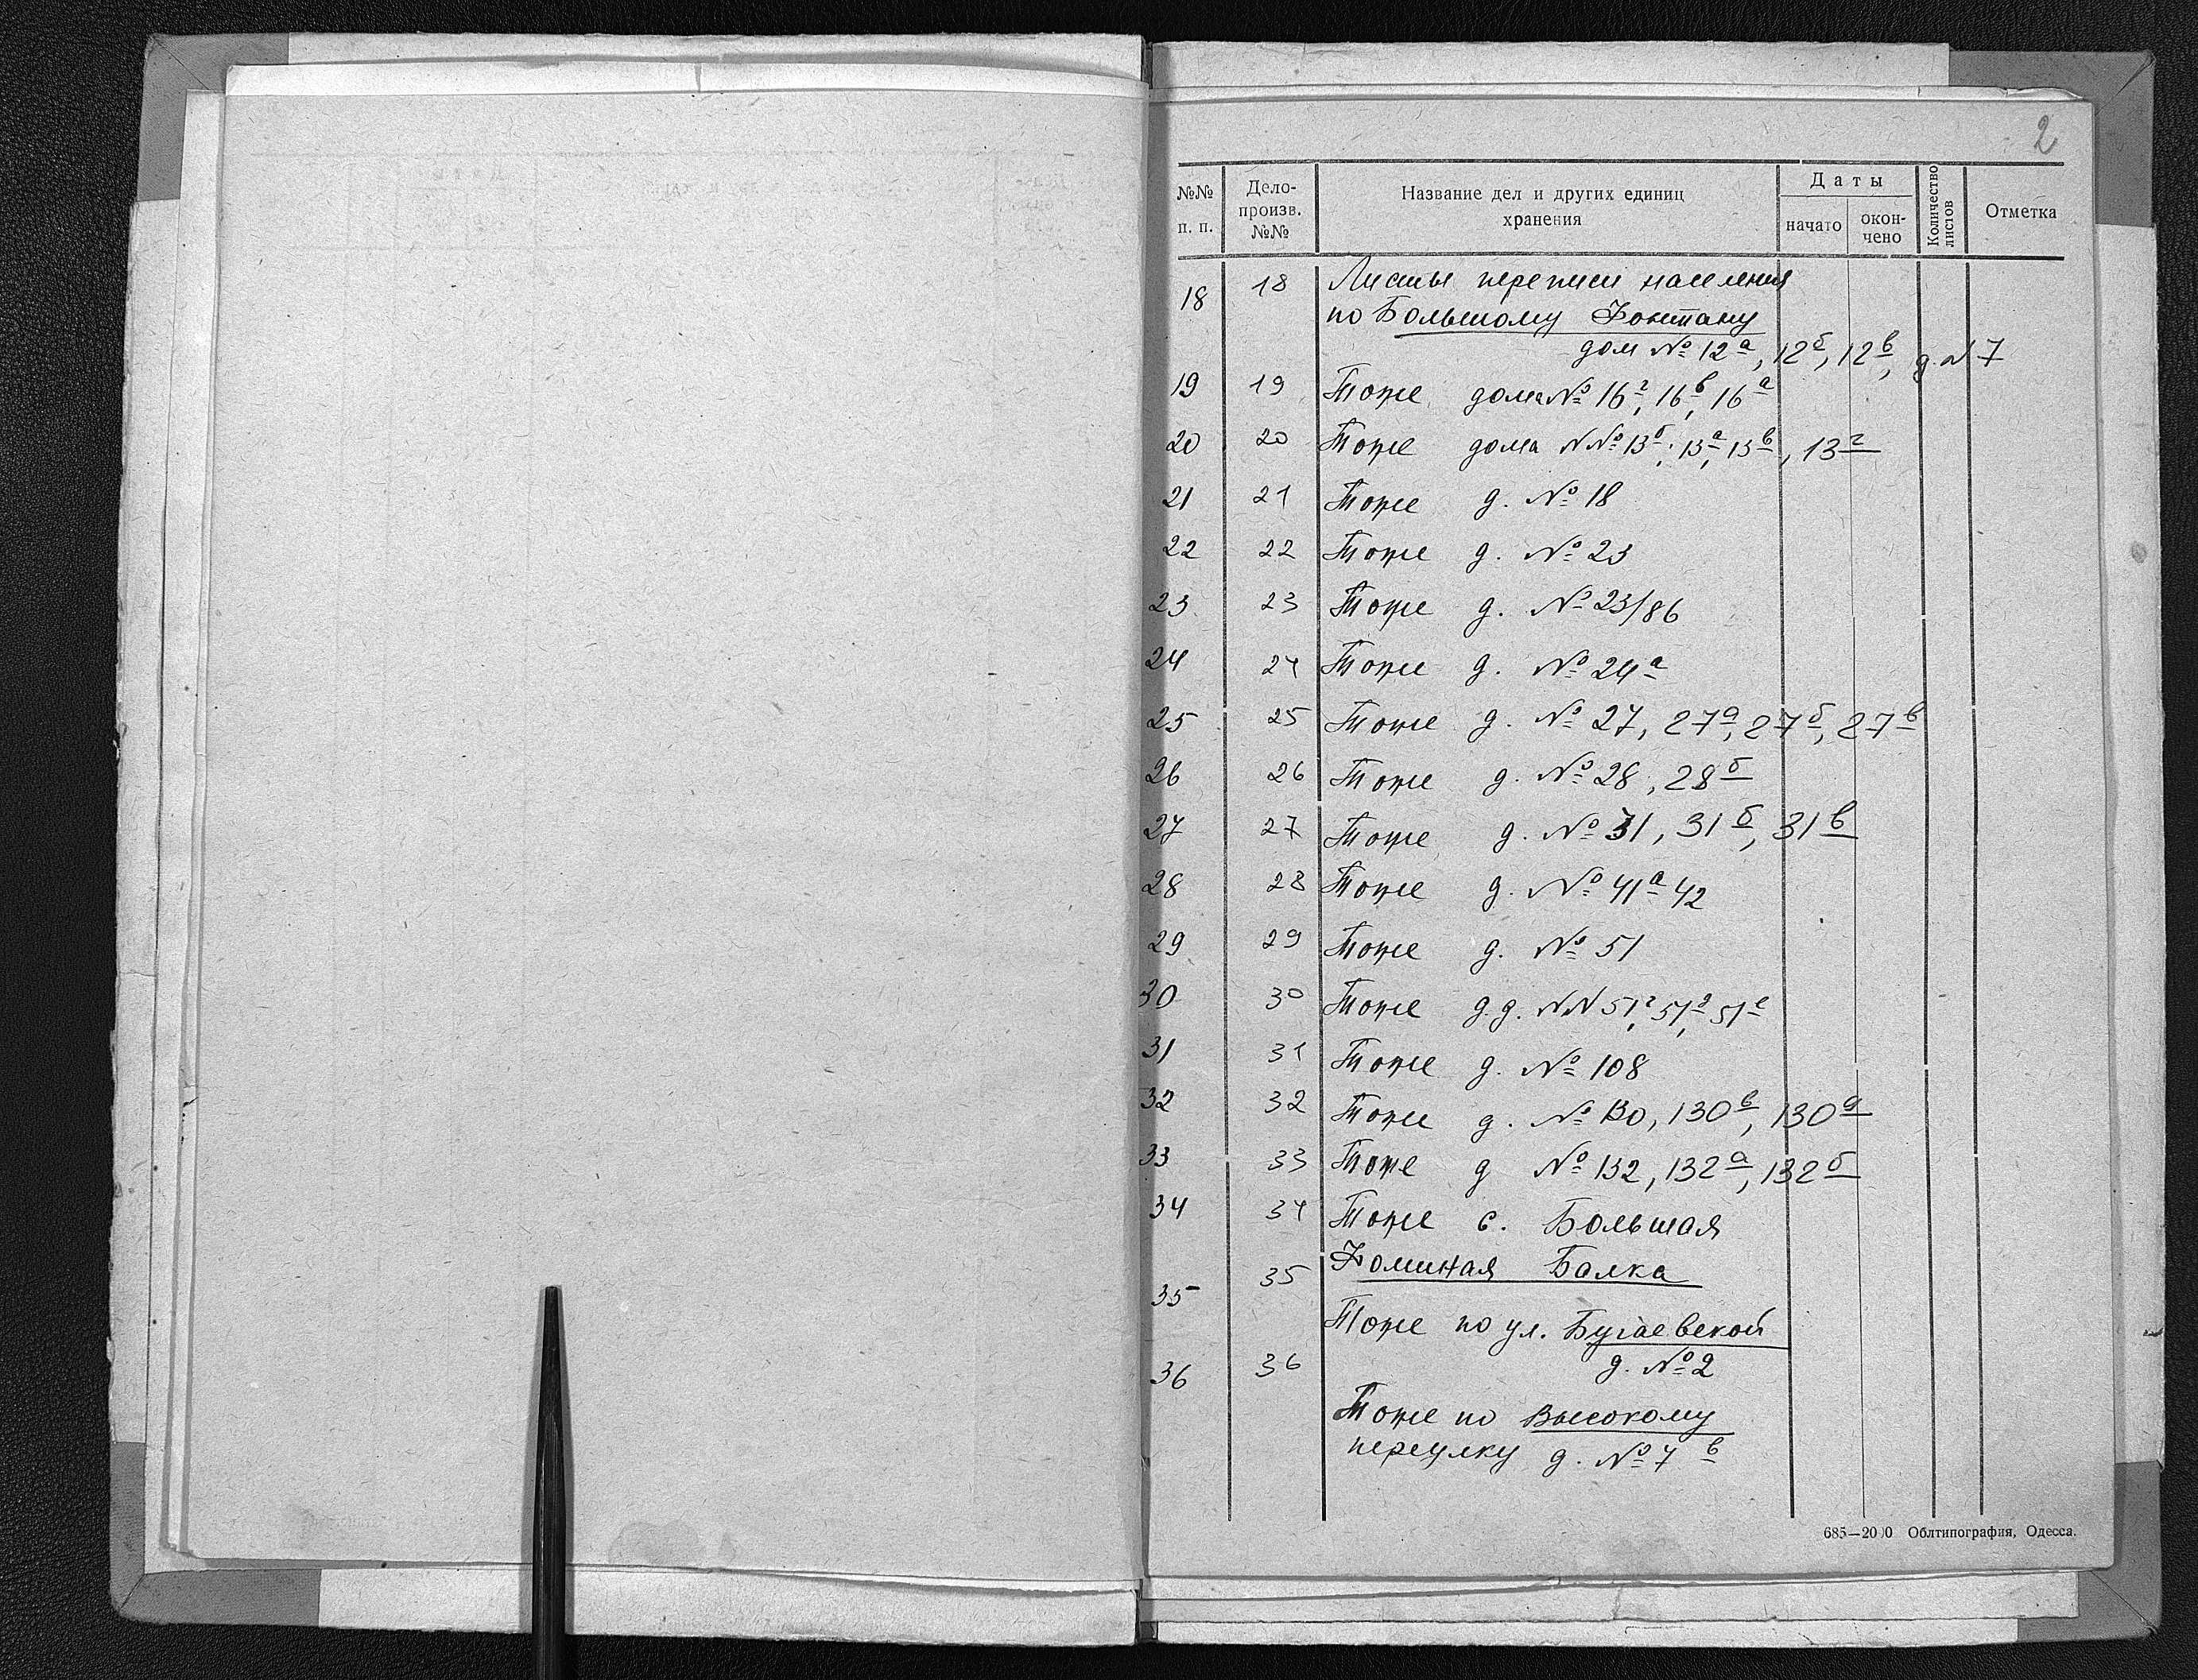 2
№№ п. п. Дело-произв. №№ Название дел и других единиц хранения Даты начато окончено Количество листов Отметка
18 18 Листы переписи населения
по Большому Фонтану
дом № 12а, 12б, 12в, д. N 7
19 19 Тоже дома № 16г, 16в, 16а
20 20 Тоже дома №№ 13б, 13а, 13в, 13г
21 21 Тоже д. № 18
22 22 Тоже д. № 23
23 23 Тоже д. № 23/86
24 24 Тоже д. № 24а
25 25 Тоже д. № 27, 27а, 27б, 27в
26 26 Тоже д. № 28, 28б
27 27 Тоже д. № 31, 31б, 31в
28 28 Тоже д. № 41а 42
29 29 Тоже д. № 51
30 30 Тоже д.д. NN 51г, 51д, 51е
31 31 Тоже д. № 108
32 32 Тоже д. № 130, 130в, 130д
33 33 Тоже д № 132, 132а, 132б
34 34 Тоже с. Большая
Фоминая Балка
35 35 Тоже по ул. Бугаевской
д. № 2
36 36 Тоже по Высокому
переулку д. № 7в
685—2000 Облтипография, Одесса.